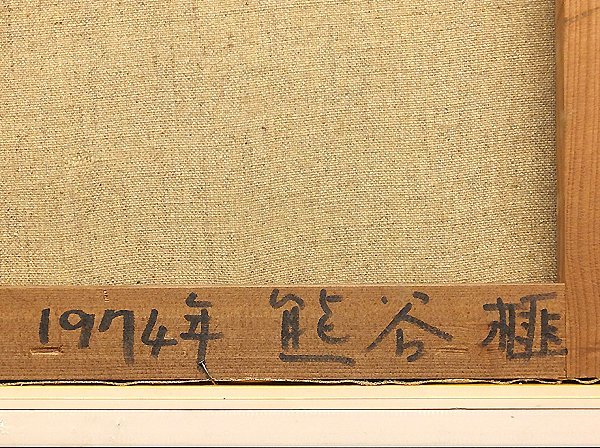 1974年 熊谷 榧